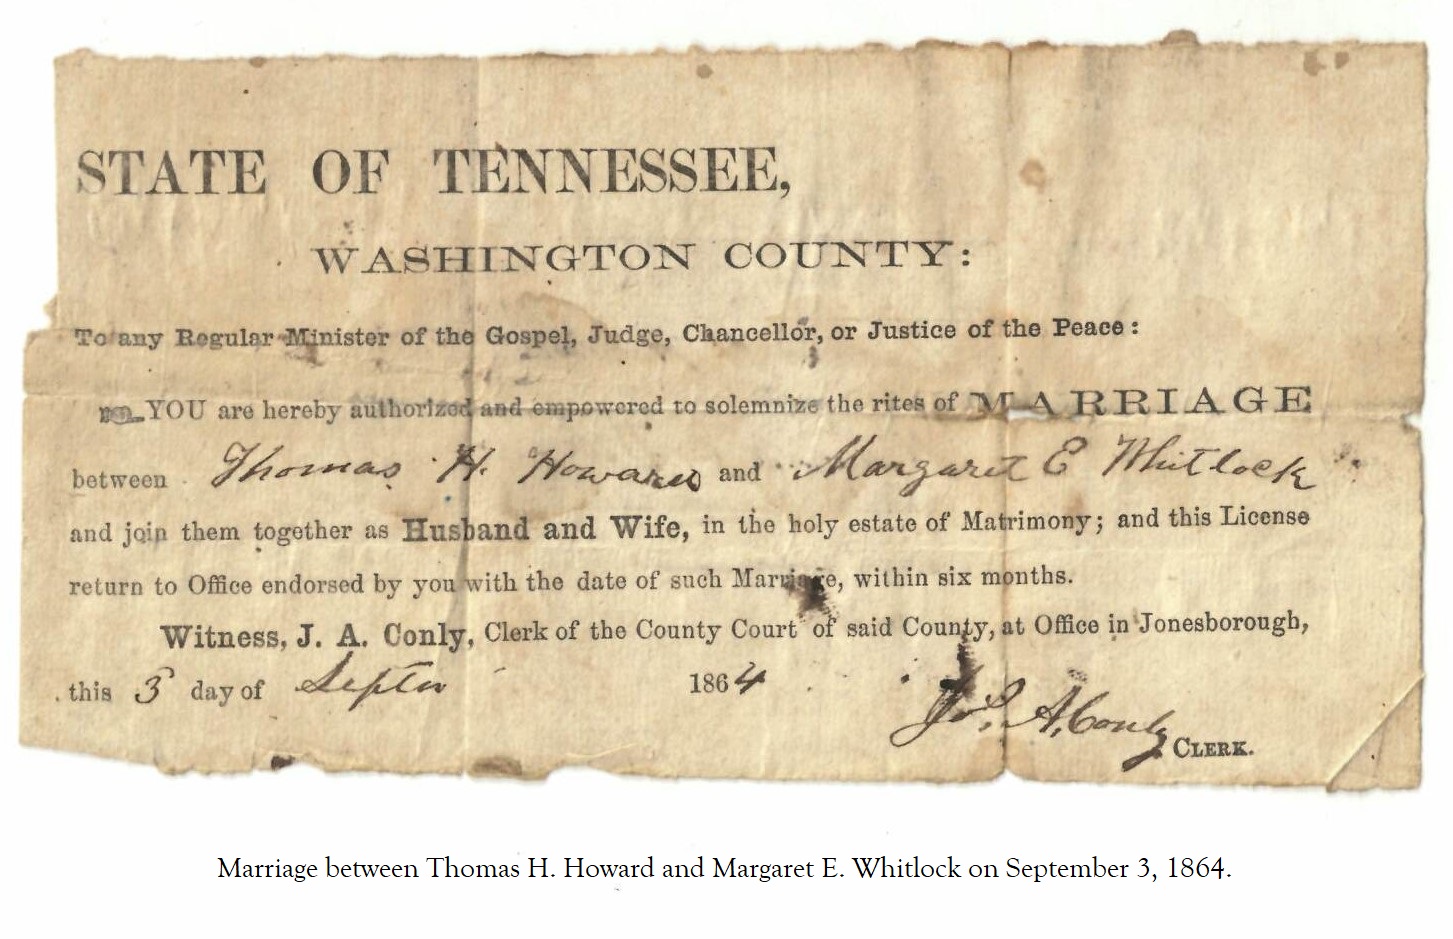 STATE OF TENNESSEE,
WASHINGTON COUNTY:
To any Regular Minister of the Gospel, Judge, Chancellor, or Justice of the Peace:
YOU are hereby authorized and empowered to solemnize the rites of MARRIAGE
between Thomas H. Howard and Margaret E Whitlock
and join them together as Husband and Wife, in the holy estate of Matrimony; and this License
return to Office endorsed by you with the date of such Marriage, within six months.
Witness, J. A. Conly, Clerk of the County Court of said County, at Office in Jonesborough,
this 3 day of Septer 1864
Jos. A. Conly CLERK.
Marriage between Thomas H. Howard and Margaret E. Whitlock on September 3, 1864.